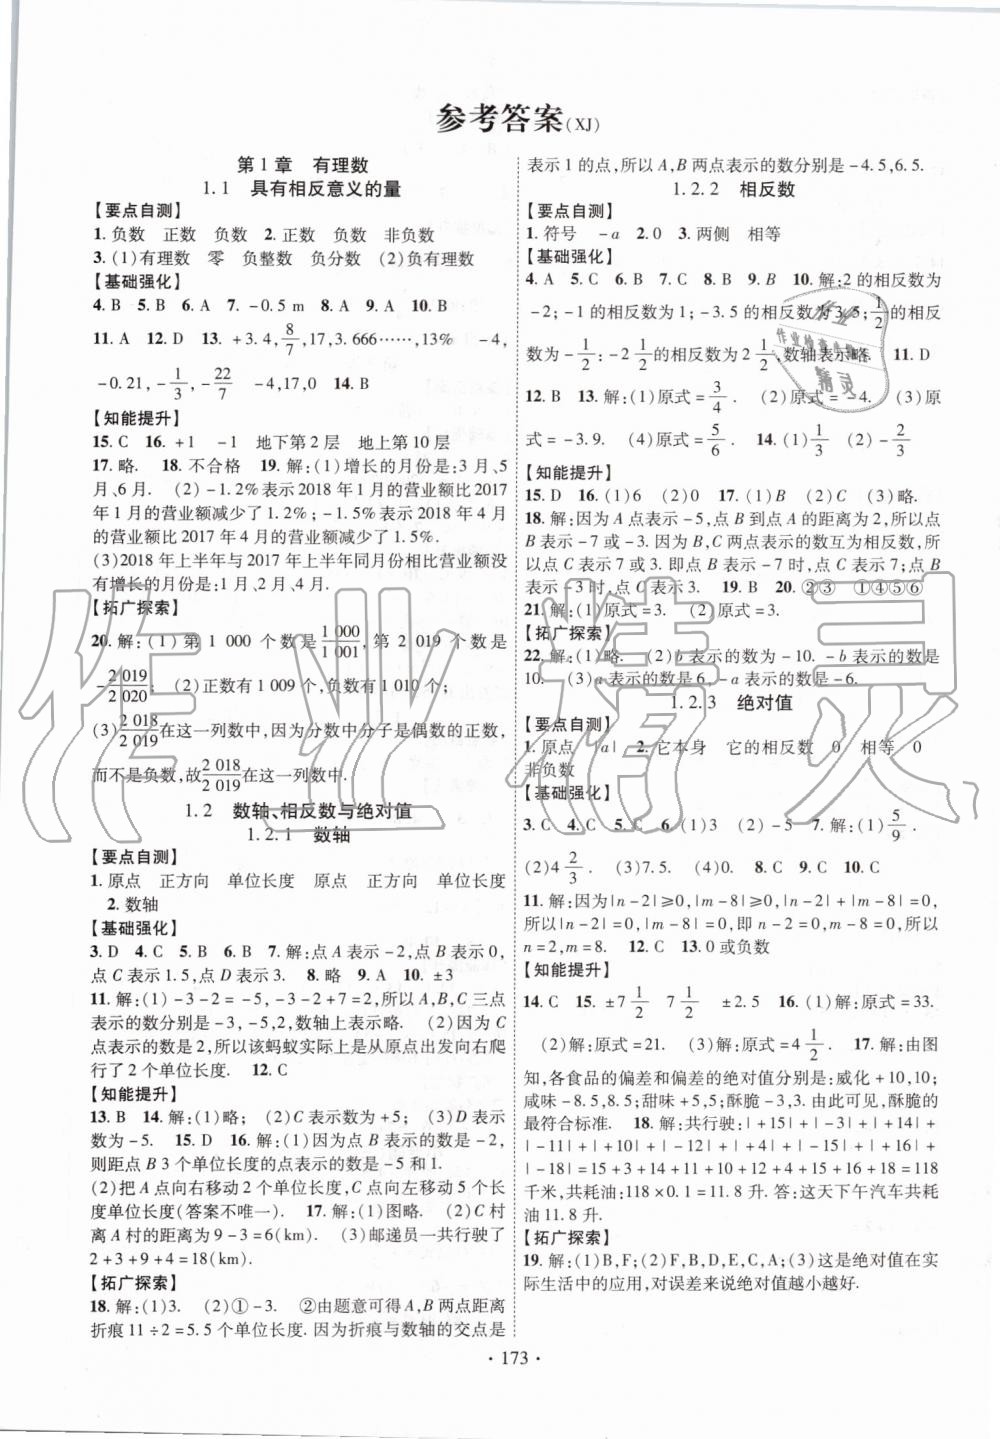 参考答案(XJ)
第1章 有理数
1.1 具有相反意义的量
【要点自测】
1. 负数 正数 负数 2. 正数 负数 非负数
3. (1)有理数 零 负整数 负分数 (2)负有理数
【基础强化】
4. B 5. B 6. A 7. -0.5 m 8. A 9. A 10. B
11. A 12. D 13. +3.4, 8/7, 17, 3.666……, 13% -4,
-0.21, -1/3, -22/7 -4, 17, 0 14. B
【知能提升】
15. C 16. +1 -1 地下第2层 地上第10层
17. 略. 18. 不合格 19. 解:(1)增长的月份是:3月、5
月、6月. (2)-1.2%表示2018年1月的营业额比2017
年1月的营业额减少了1.2%;-1.5%表示2018年4月
的营业额比2017年4月的营业额减少了1.5%.
(3)2018年上半年与2017年上半年同月份相比营业额没
有增长的月份是:1月、2月、4月.
【拓广探索】
20. 解:(1)第1 000个数是1 000/1 001,第2 019个数是
-2 019/2 020; (2)正数有1 009个,负数有1 010个;
(3)2 018/2 019在这一列数中,因为分数中分子是偶数的正数,
而不是负数,故2 018/2 019在这一列数中.
1.2 数轴、相反数与绝对值
1.2.1 数轴
【要点自测】
1. 原点 正方向 单位长度 原点 正方向 单位长度
2. 数轴
【基础强化】
3. D 4. C 5. B 6. B 7. 解:点A表示-2,点B表示0,
点C表示1.5,点D表示3. 8. 略 9. A 10. ±3
11. 解:(1)-3-2=-5,-3-2+7=2,所以A,B,C三点
表示的数分别是-3,-5,2,数轴上表示略. (2)因为C
点表示的数是2,所以该蚂蚁实际上是从原点出发向右爬
行了2个单位长度. 12. C
【知能提升】
13. B 14. 解:(1)略; (2)C表示数为+5; (3)D表示
数为-5. 15. D 16. 解:(1)因为点B表示的数是-2,
则距点B3个单位长度的点表示的数是-5和1.
(2)把A点向右移动2个单位长度,C点向左移动5个长
度单位长度(答案不唯一). 17. 解:(1)图略. (2)C村
离A村的距离为9-3=6(km). (3)邮递员一共行驶了
2+3+9+4=18(km).
【拓广探索】
18. 解:(1)3. (2)①-3. ②由题意可得A,B两点距离
折痕11÷2=5.5个单位长度. 因为折痕与数轴的交点是
表示1的点,所以A,B两点表示的数分别是-4.5,6.5.
1.2.2 相反数
【要点自测】
1. 符号 -a 2. 0 3. 两侧 相等
【基础强化】
4. A 5. C 6. B 7. B 8. D 9. B 10. 解:2的相反数为
-2;-1的相反数为1;-3.5的相反数为3.5;1/2的相反
数为-1/2;-2 1/2的相反数为2 1/2,数轴表示略. 11. D
12. B 13. 解:(1)原式=3/4. (2)原式=-4. (3)原
式=-3.9. (4)原式=5/6. 14. (1)1/3 (2)-2/3
【知能提升】
15. D 16. (1)6 (2)0 17. (1)B (2)C (3)略.
18. 解:因为A点表示-5,点B到点A的距离为2,所以点
B表示-7或-3. 因为B,C两点表示的数互为相反数,所
以点C表示7或3. 即点B表示-7时,点C表示7;点B
表示-3时,点C表示3. 19. B 20. ②③ ①④⑤⑥
21. 解:(1)原式=3. (2)原式=3.
【拓广探索】
22. 解:(1)略. (2)b表示的数为-10. -b表示的数是
10. (3)a表示的数是6,-a表示的数是-6.
1.2.3 绝对值
【要点自测】
1. 原点 |a| 2. 它本身 它的相反数 0 相等 0
非负数
【基础强化】
3. C 4. C 5. C 6. (1)3 (2)-5 7. 解:(1)5/9.
(2)4 2/3. (3)7.5. (4)0. 8. C 9. C 10. C
11. 解:因为|n-2|≥0,|m-8|≥0,|n-2|+|m-8|=0,
所以|n-2|=0,|m-8|=0,即n-2=0,m-8=0,所以
n=2,m=8. 12. C 13. 0或负数
【知能提升】
14. C 15. ±7 1/2 7 1/2 ±2.5 16. (1)解:原式=33.
(2)解:原式=21. (3)解:原式=4 1/2. 17. 解:由图
知,各食品的偏差和偏差的绝对值分别是:威化+10,10;
咸味-8.5,8.5;甜味+5,5;酥脆-3,3. 由此可见,酥脆的
最符合标准. 18. 解:共行驶:|+15|+|-3|+|+14|+
|-11|+|+10|+|-12|+|+4|+|-15|+|+16|+
|-18|=15+3+14+11+10+12+4+15+16+18=118
千米,共耗油:118×0.1=11.8升. 答:这天下午汽车共耗
油11.8升.
【拓广探索】
19. 解:(1)B,F;(2)F,B,D,E,C,A;(3)这是绝对值在实
际生活中的应用,对误差来说绝对值越小越好.
· 173 ·
作业精灵